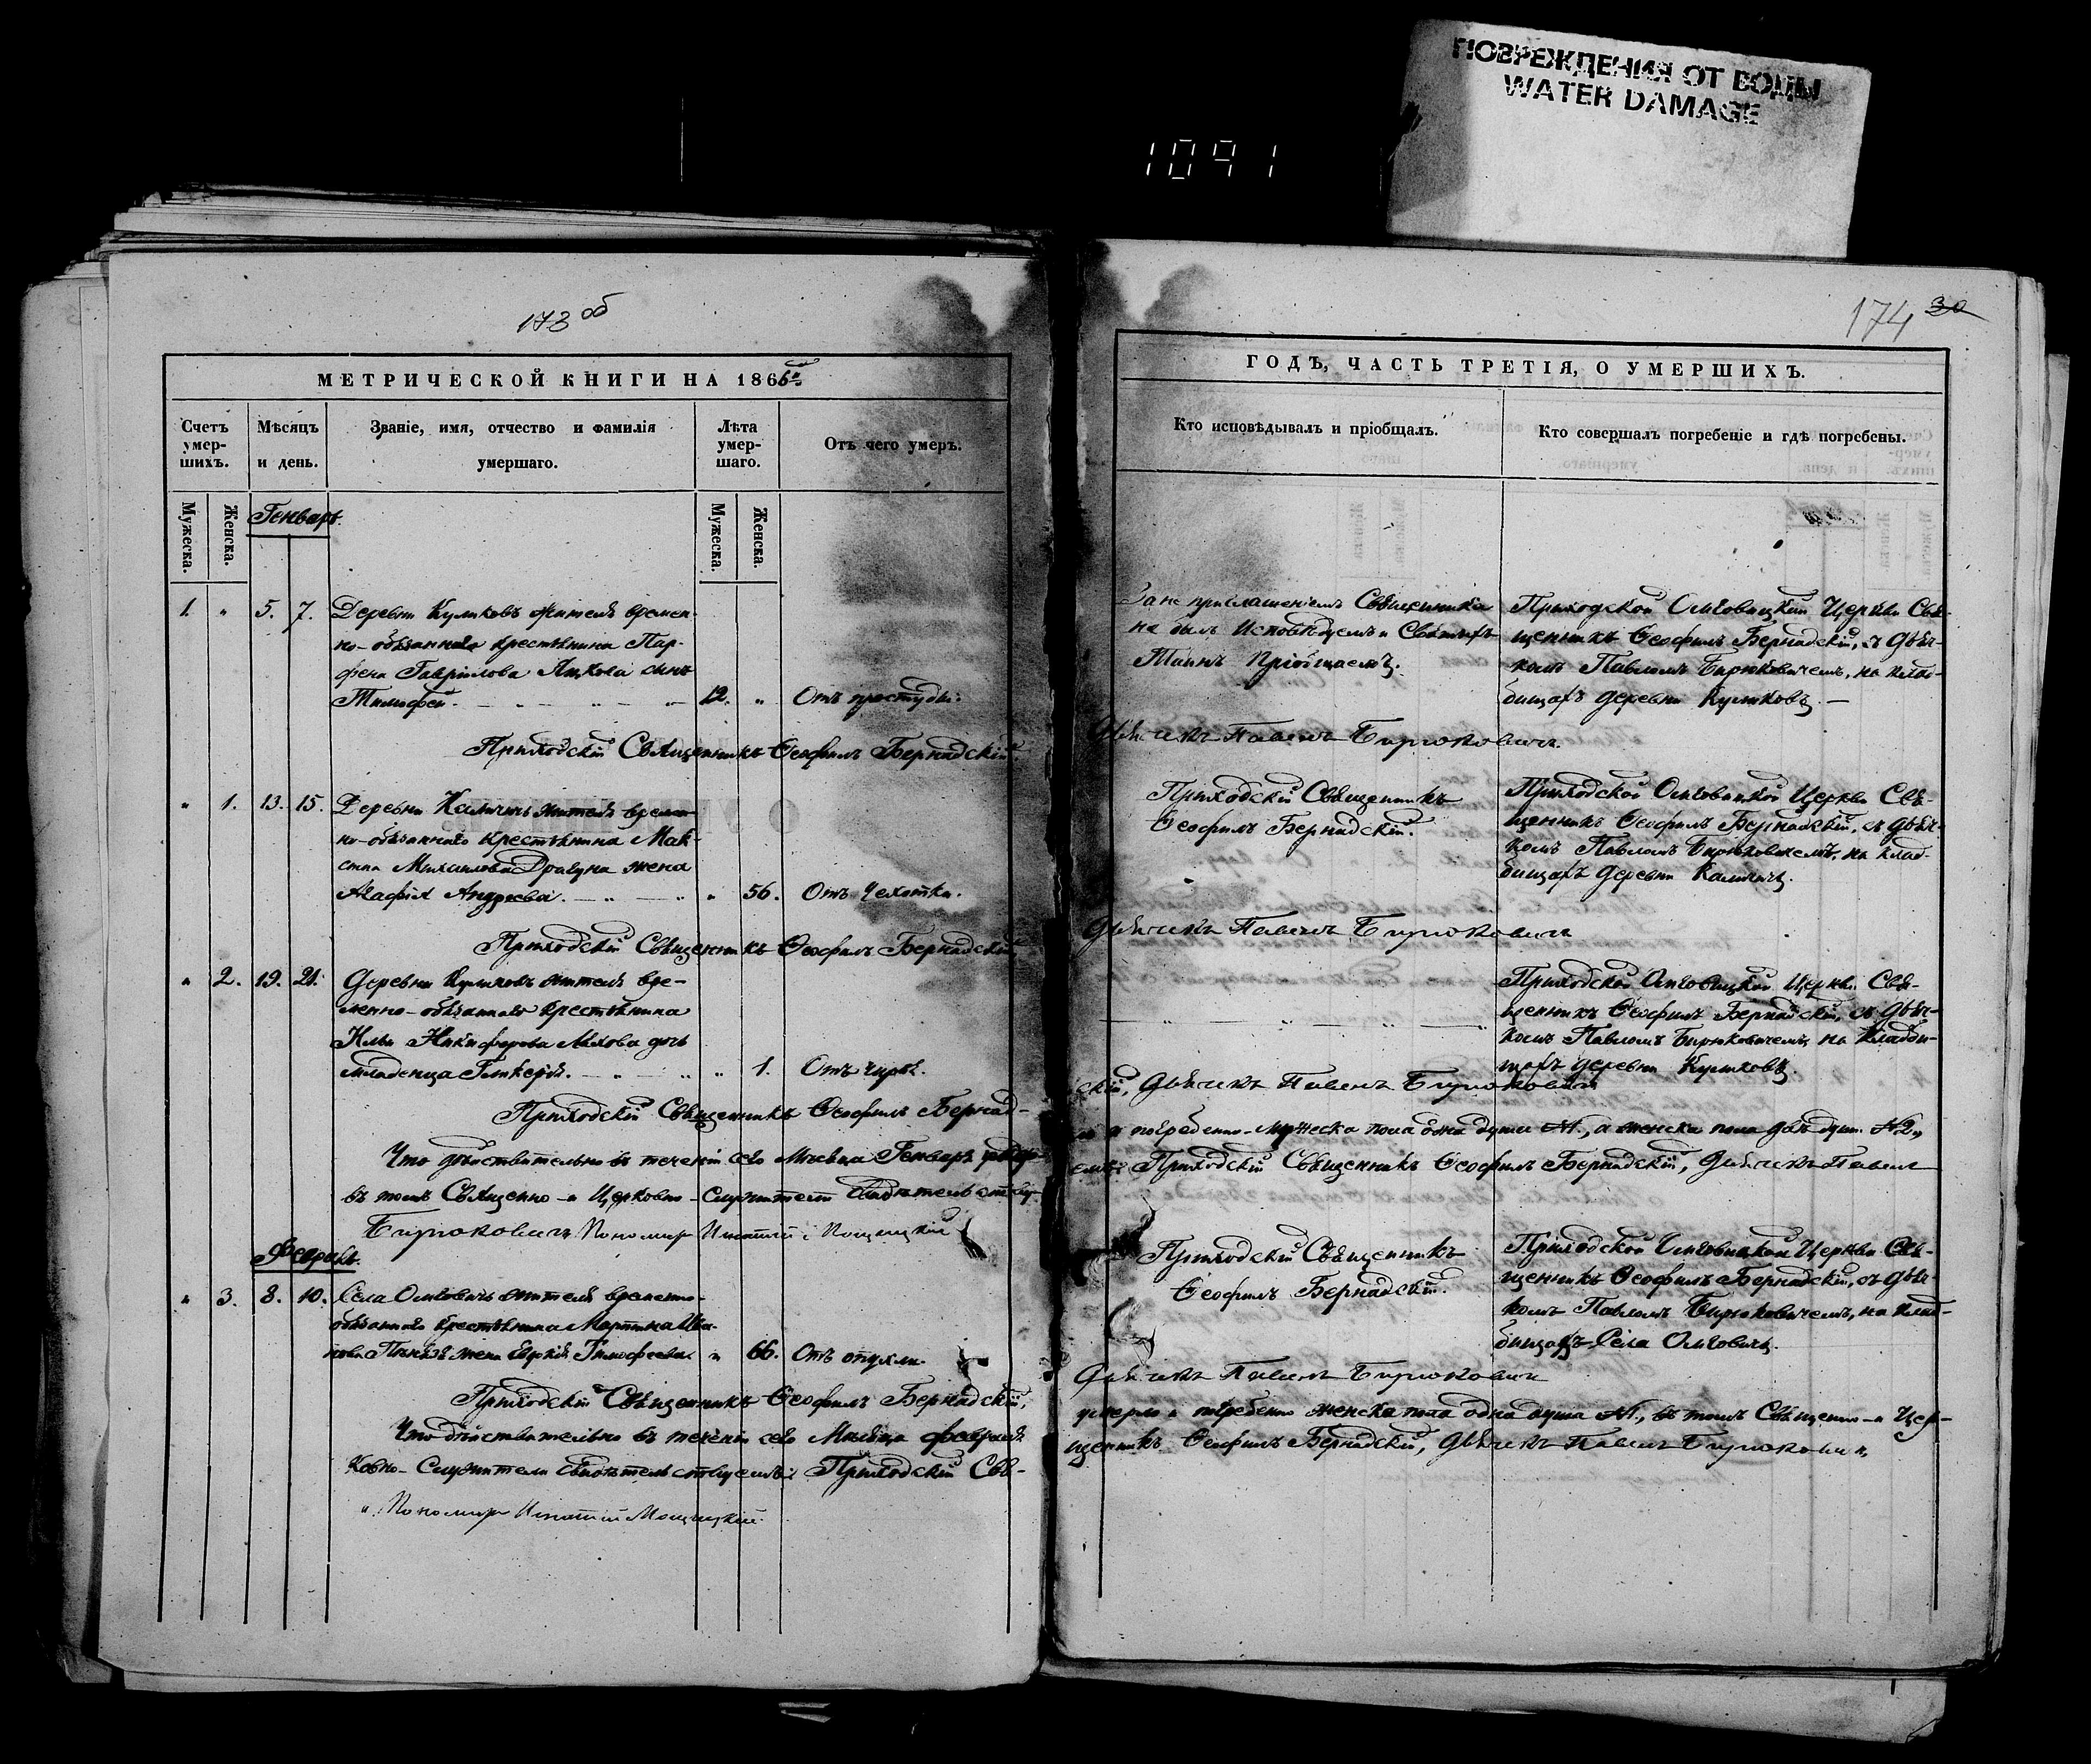 ПОВРЕЖДЕНИЯ ОТ ВОДЫ
WATER DAMAGE
1091
173 об
МЕТРИЧЕСКОЙ КНИГИ НА 1866
Счетъ умер-шихъ.
Мѣсяцъ и день.
Званіе, имя, отчество и фамилія умершаго.
Лѣта умер-шаго.
Отъ чего умеръ.
Мужеска.
Женска.
Генварь.
Мужеска.
Женска.
1. " 5. 7. Деревни Куликовъ жителя времен-
но-обязаннаго крестьянина Пар-
фена Гаврилова сынъ
Тимофей. 12. " Отъ простуды.
Приходскій Священникъ Ѳеофилъ Бернадскій.
" 1. 13. 15. Деревни жителя времен-
но-обязаннаго крестьянина Мак-
сима Михайлова жена
Агафія Андреева. " 56. Отъ чахотки.
Приходскій Священникъ Ѳеофилъ Бернадскій
" 2. 19. 21. Деревни Куликовъ жителя вре-
менно-обязаннаго крестьянина
Ильи Никифорова дочь
младенца Гликерія. " 1. Отъ
Приходскій Священникъ Ѳеофилъ Бернад-
Что дѣйствительно въ теченіи сего Мѣсяца Генваря
въ томъ Священно-и Церковно-Служители
Бирюковичъ Пономарь Игнатій
Февраль.
" 3. 8. 10. Села Ольговичъ жителя временно-
обязаннаго крестьянина Мартина Ива-
нова жена Тимофеева. " 66. Отъ опухли.
Приходскій Священникъ Ѳеофилъ Бернадскій,
Что дѣйствительно въ теченіи сего Мѣсяца февраля
ковно-Служители свидѣтельствуемъ: Приходскій Свя-
Пономарь Игнатій
174 30
ГОДЪ, ЧАСТЬ ТРЕТІЯ, О УМЕРШИХЪ.
Кто исповѣдывалъ и пріобщалъ.
Кто совершалъ погребеніе и гдѣ погребены.
За не приглашеніемъ Священника
не былъ Исповѣдуемъ и Святыхъ
Таинъ Пріобщаемъ.
Приходской Ольговицкой Церкви Свя-
щенникъ Ѳеофилъ Бернадскій, съ дья-
комъ Павломъ Бирюковичемъ, на клад-
бищахъ деревни Куликовъ.
Дьячекъ Павелъ Бирюковичъ.
Приходскій Священникъ
Ѳеофилъ Бернадскій.
Приходской Ольговицкой Церкви Свя-
щенникъ Ѳеофилъ Бернадскій, съ дьяч-
комъ Павломъ Бирюковичемъ, на клад-
бищахъ деревни
Дьячекъ Павелъ Бирюковичъ
Приходской Ольговицкой Церкви Свя-
щенникъ Ѳеофилъ Бернадскій, съ дьяч-
комъ Павломъ Бирюковичемъ, на кладби-
щахъ деревни Куликовъ.
скій, Дьячекъ Павелъ Бирюковичъ
и погребенно-мужеска пола одна душа №1., а женска пола двѣ души №2.,
емъ: Приходскій Священникъ Ѳеофилъ Бернадскій, Дьячекъ Павелъ
Приходскій Священникъ
Ѳеофилъ Бернадскій.
Приходской Ольговицкой Церкви Свя-
щенникъ Ѳеофилъ Бернадскій, съ дьяч-
комъ Павломъ Бирюковичемъ, на клад-
бищахъ Села Ольговичъ.
Дьячекъ Павелъ Бирюковичъ
умерло и погребенно женска пола одна душа №1., въ томъ Священно-и Цер-
щенникъ Ѳеофилъ Бернадскій, Дьячекъ Павелъ Бирюковичъ,